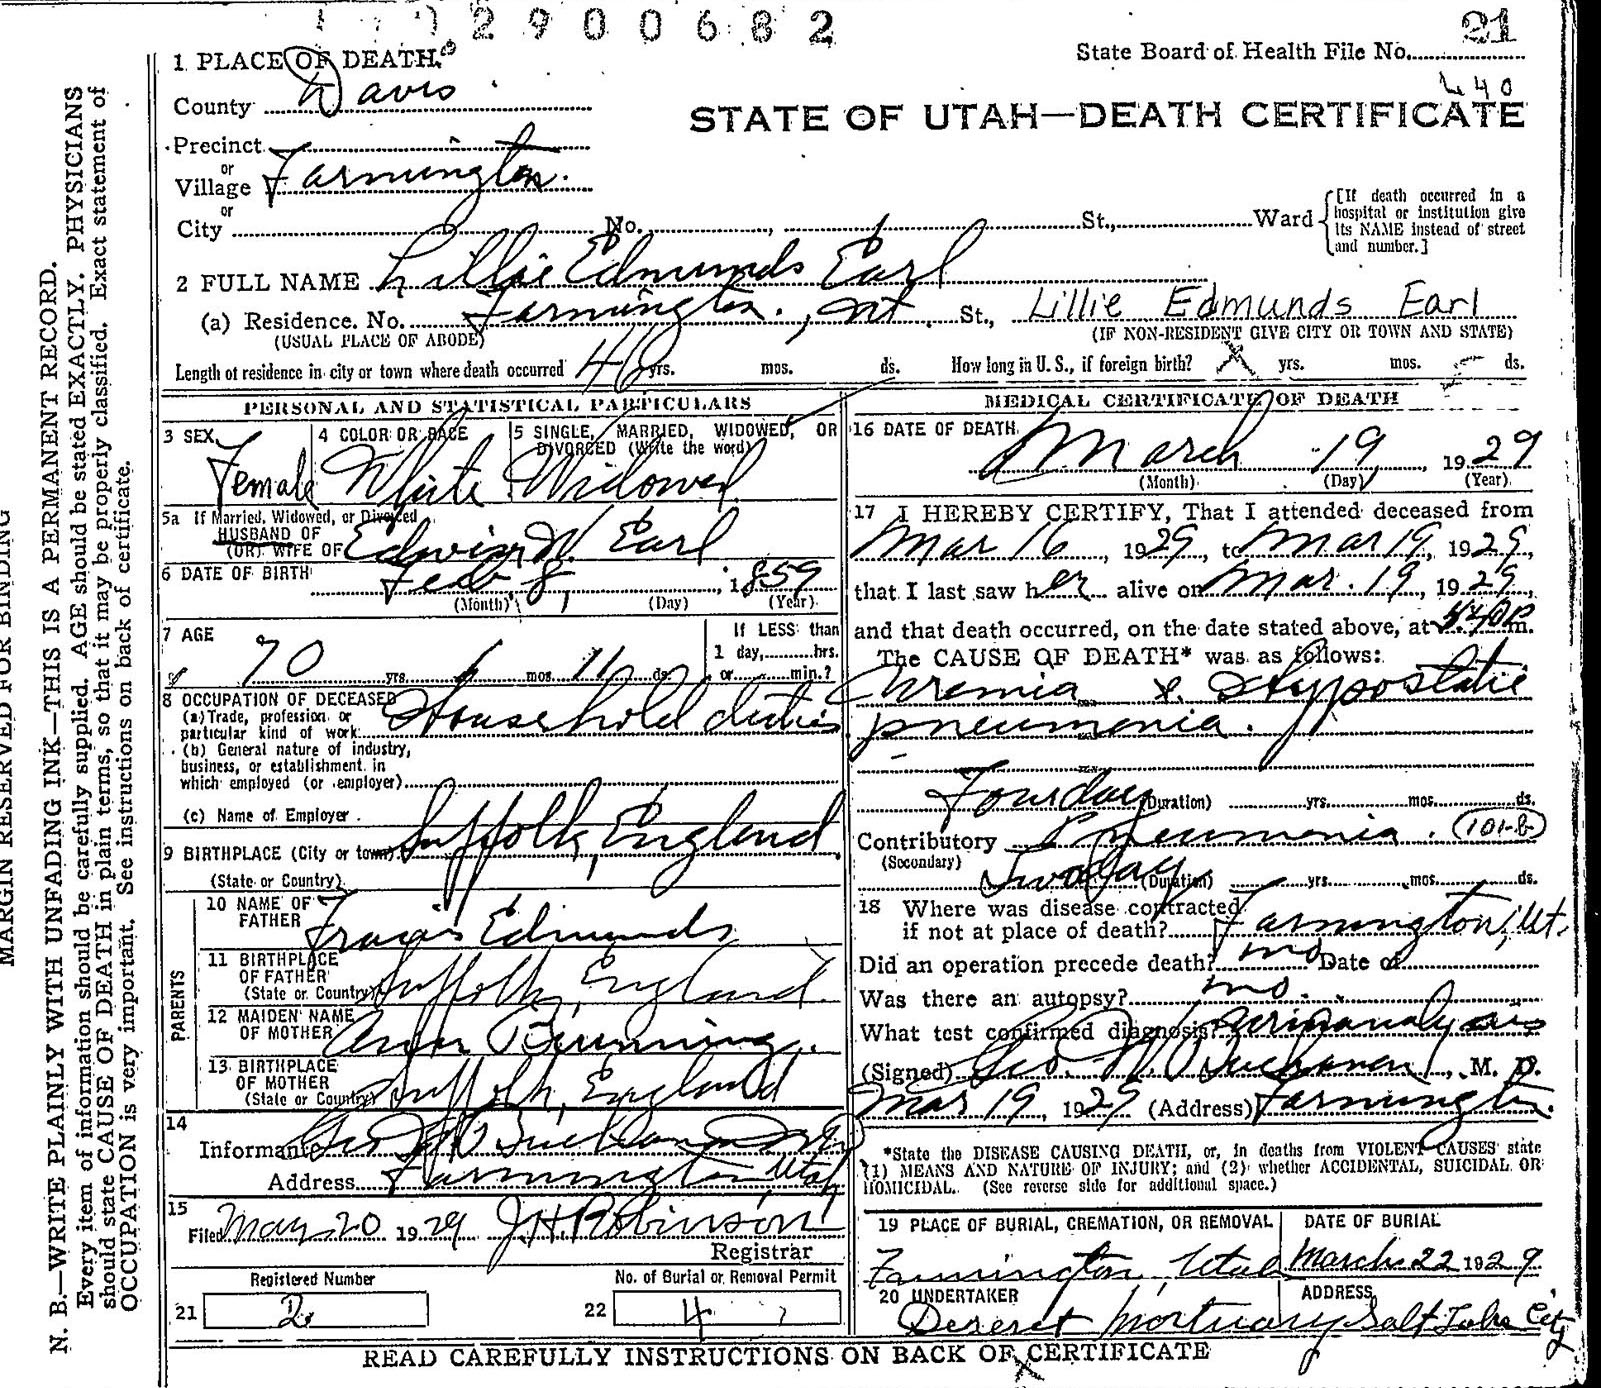 2900682
21
State Board of Health File No.
440
1 PLACE OF DEATH
County Davis
STATE OF UTAH—DEATH CERTIFICATE
Precinct
or
Village Farmington.
or
City No. , St., Ward
[If death occurred in a
hospital or institution give
its NAME instead of street
and number.]
2 FULL NAME Lillie Edmunds Earl
(a) Residence. No. Farmington., Ut. St., Lillie Edmunds Earl
(USUAL PLACE OF ABODE) (IF NON-RESIDENT GIVE CITY OR TOWN AND STATE)
Length of residence in city or town where death occurred yrs. mos. ds. How long in U. S., if foreign birth? yrs. mos. ds.
PERSONAL AND STATISTICAL PARTICULARS
3 SEX 4 COLOR OR RACE 5 SINGLE, MARRIED, WIDOWED, OR
DIVORCED (Write the word)
Female White Widowed
5a If Married, Widowed, or Divorced
HUSBAND OF
(OR) WIFE OF Edwin W. Earl
6 DATE OF BIRTH Feb 8, 1859
(Month) (Day) (Year)
7 AGE
If LESS than
1 day, hrs.
or min.?
70 yrs. 1 mos. 11 ds.
8 OCCUPATION OF DECEASED
(a) Trade, profession or
particular kind of work Household duties
(b) General nature of industry,
business, or establishment in
which employed (or employer)
(c) Name of Employer
9 BIRTHPLACE (City or town) Suffolk, England
(State or Country)
PARENTS
10 NAME OF
FATHER Edmunds
11 BIRTHPLACE
OF FATHER
(State or Country) Suffolk, England.
12 MAIDEN NAME
OF MOTHER
13 BIRTHPLACE
OF MOTHER
(State or Country) Suffolk, England
14
Informant Geo. W. Buchanan
Address Farmington, Utah
15
Filed May 20 1929 J. H. Robinson
Registrar
Registered Number No. of Burial or Removal Permit
21 2 22 4
MEDICAL CERTIFICATE OF DEATH
16 DATE OF DEATH
March 19, 1929
(Month) (Day) (Year)
17 I HEREBY CERTIFY, That I attended deceased from
Mar 16, 1929, to Mar 19, 1929,
that I last saw her alive on Mar. 19, 1929,
and that death occurred, on the date stated above, at m.
The CAUSE OF DEATH* was as follows:
Uremia & Hypostatic
pneumonia.
Four days (Duration) yrs. mos. ds.
Contributory Pneumonia. 101-b
(Secondary)
Two days (Duration) yrs. mos. ds.
18 Where was disease contracted
if not at place of death? Farmington, Ut.
Did an operation precede death? no Date of
Was there an autopsy? no.
What test confirmed diagnosis? Urinanalysis
(Signed) Geo. W. Buchanan, M. D.
Mar 19, 1929 (Address) Farmington.
*State the DISEASE CAUSING DEATH, or, in deaths from VIOLENT CAUSES state
(1) MEANS AND NATURE OF INJURY; and (2) whether ACCIDENTAL, SUICIDAL OR
HOMICIDAL. (See reverse side for additional space.)
19 PLACE OF BURIAL, CREMATION, OR REMOVAL DATE OF BURIAL
Farmington, Utah March 22 1929
20 UNDERTAKER ADDRESS
Deseret Mortuary Salt Lake City
READ CAREFULLY INSTRUCTIONS ON BACK OF CERTIFICATE
MARGIN RESERVED FOR BINDING
N. B.—WRITE PLAINLY WITH UNFADING INK—THIS IS A PERMANENT RECORD.
Every item of information should be carefully supplied. AGE should be stated EXACTLY. PHYSICIANS
should state CAUSE OF DEATH in plain terms, so that it may be properly classified. Exact statement of
OCCUPATION is very important. See instructions on back of certificate.